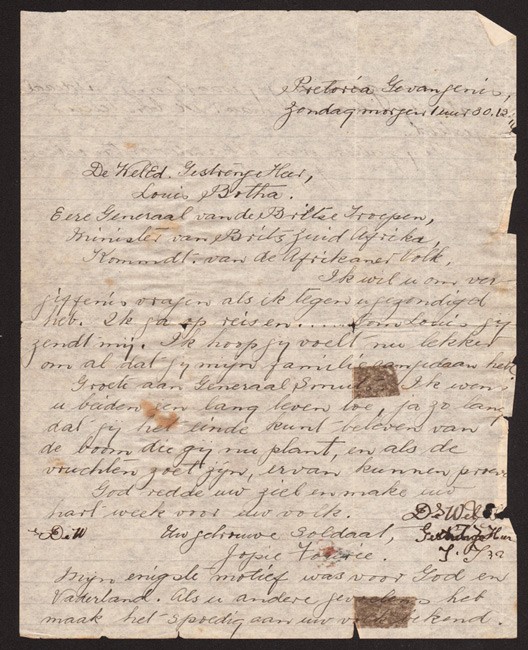 Pretoria Gevangenis,
Zondagmorgen 1 uur 30. 13
De WelEd. Gestrenge Heer,
Louis Botha.
Eere Generaal van de Britse Troepen,
Minister van Brits Zuid Afrika,
Kommdt. van de Afrikaner Volk.
Ik wil u om ver-
giffenis vragen als ik tegen u gezondigd
heb. Ik ga op reis en ..... Oom Louis gy
zendt mij. Ik hoop gy voelt nu lekker
om al dat gy mijn familie aangedaan hebt
Groete aan Generaal Smuts. Ik wens
u beiden een lang leven toe, ja zo lang
dat gy het einde kunt beleven van
de boom die gy nu plant, en als de
vruchten zoet zyn, ervan kunnen proeve
God redde uw ziel en make uw
hart week voor uw volk.
De W Uw getrouwe Soldaat,
Jopie Fourie.
Mijn enigste motief was voor God en
Vaderland. Als u andere het
maak het spoedig aan uw bekend.